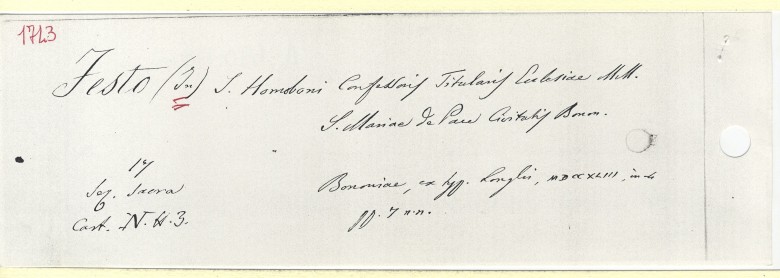 1743
Festo (In) S. Homoboni Confessoris Titularis Ecclesiae MM.
S. Mariae de Pace Civitatis Bonon.
17
Sez. Sacra
Cart. N. H. 3.
Bononiae, ex typ. Longhi, MDCCXLIII, in-4
pp. 7 n.n.